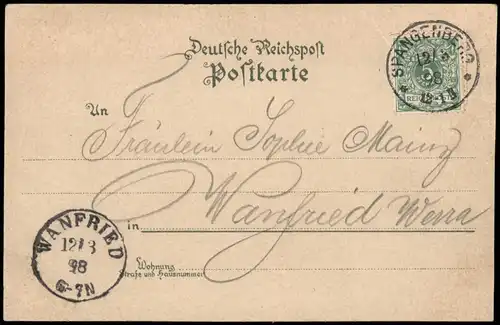 Deutsche Reichspost
Postkarte
SPANGENBERG
12/3
98
REICHSPOST
An Fräulein Sophie Mainz
in Wanfried Werra
WANFRIED
12/3
98
6-7N
Wohnung
(Straße und Hausnummer)